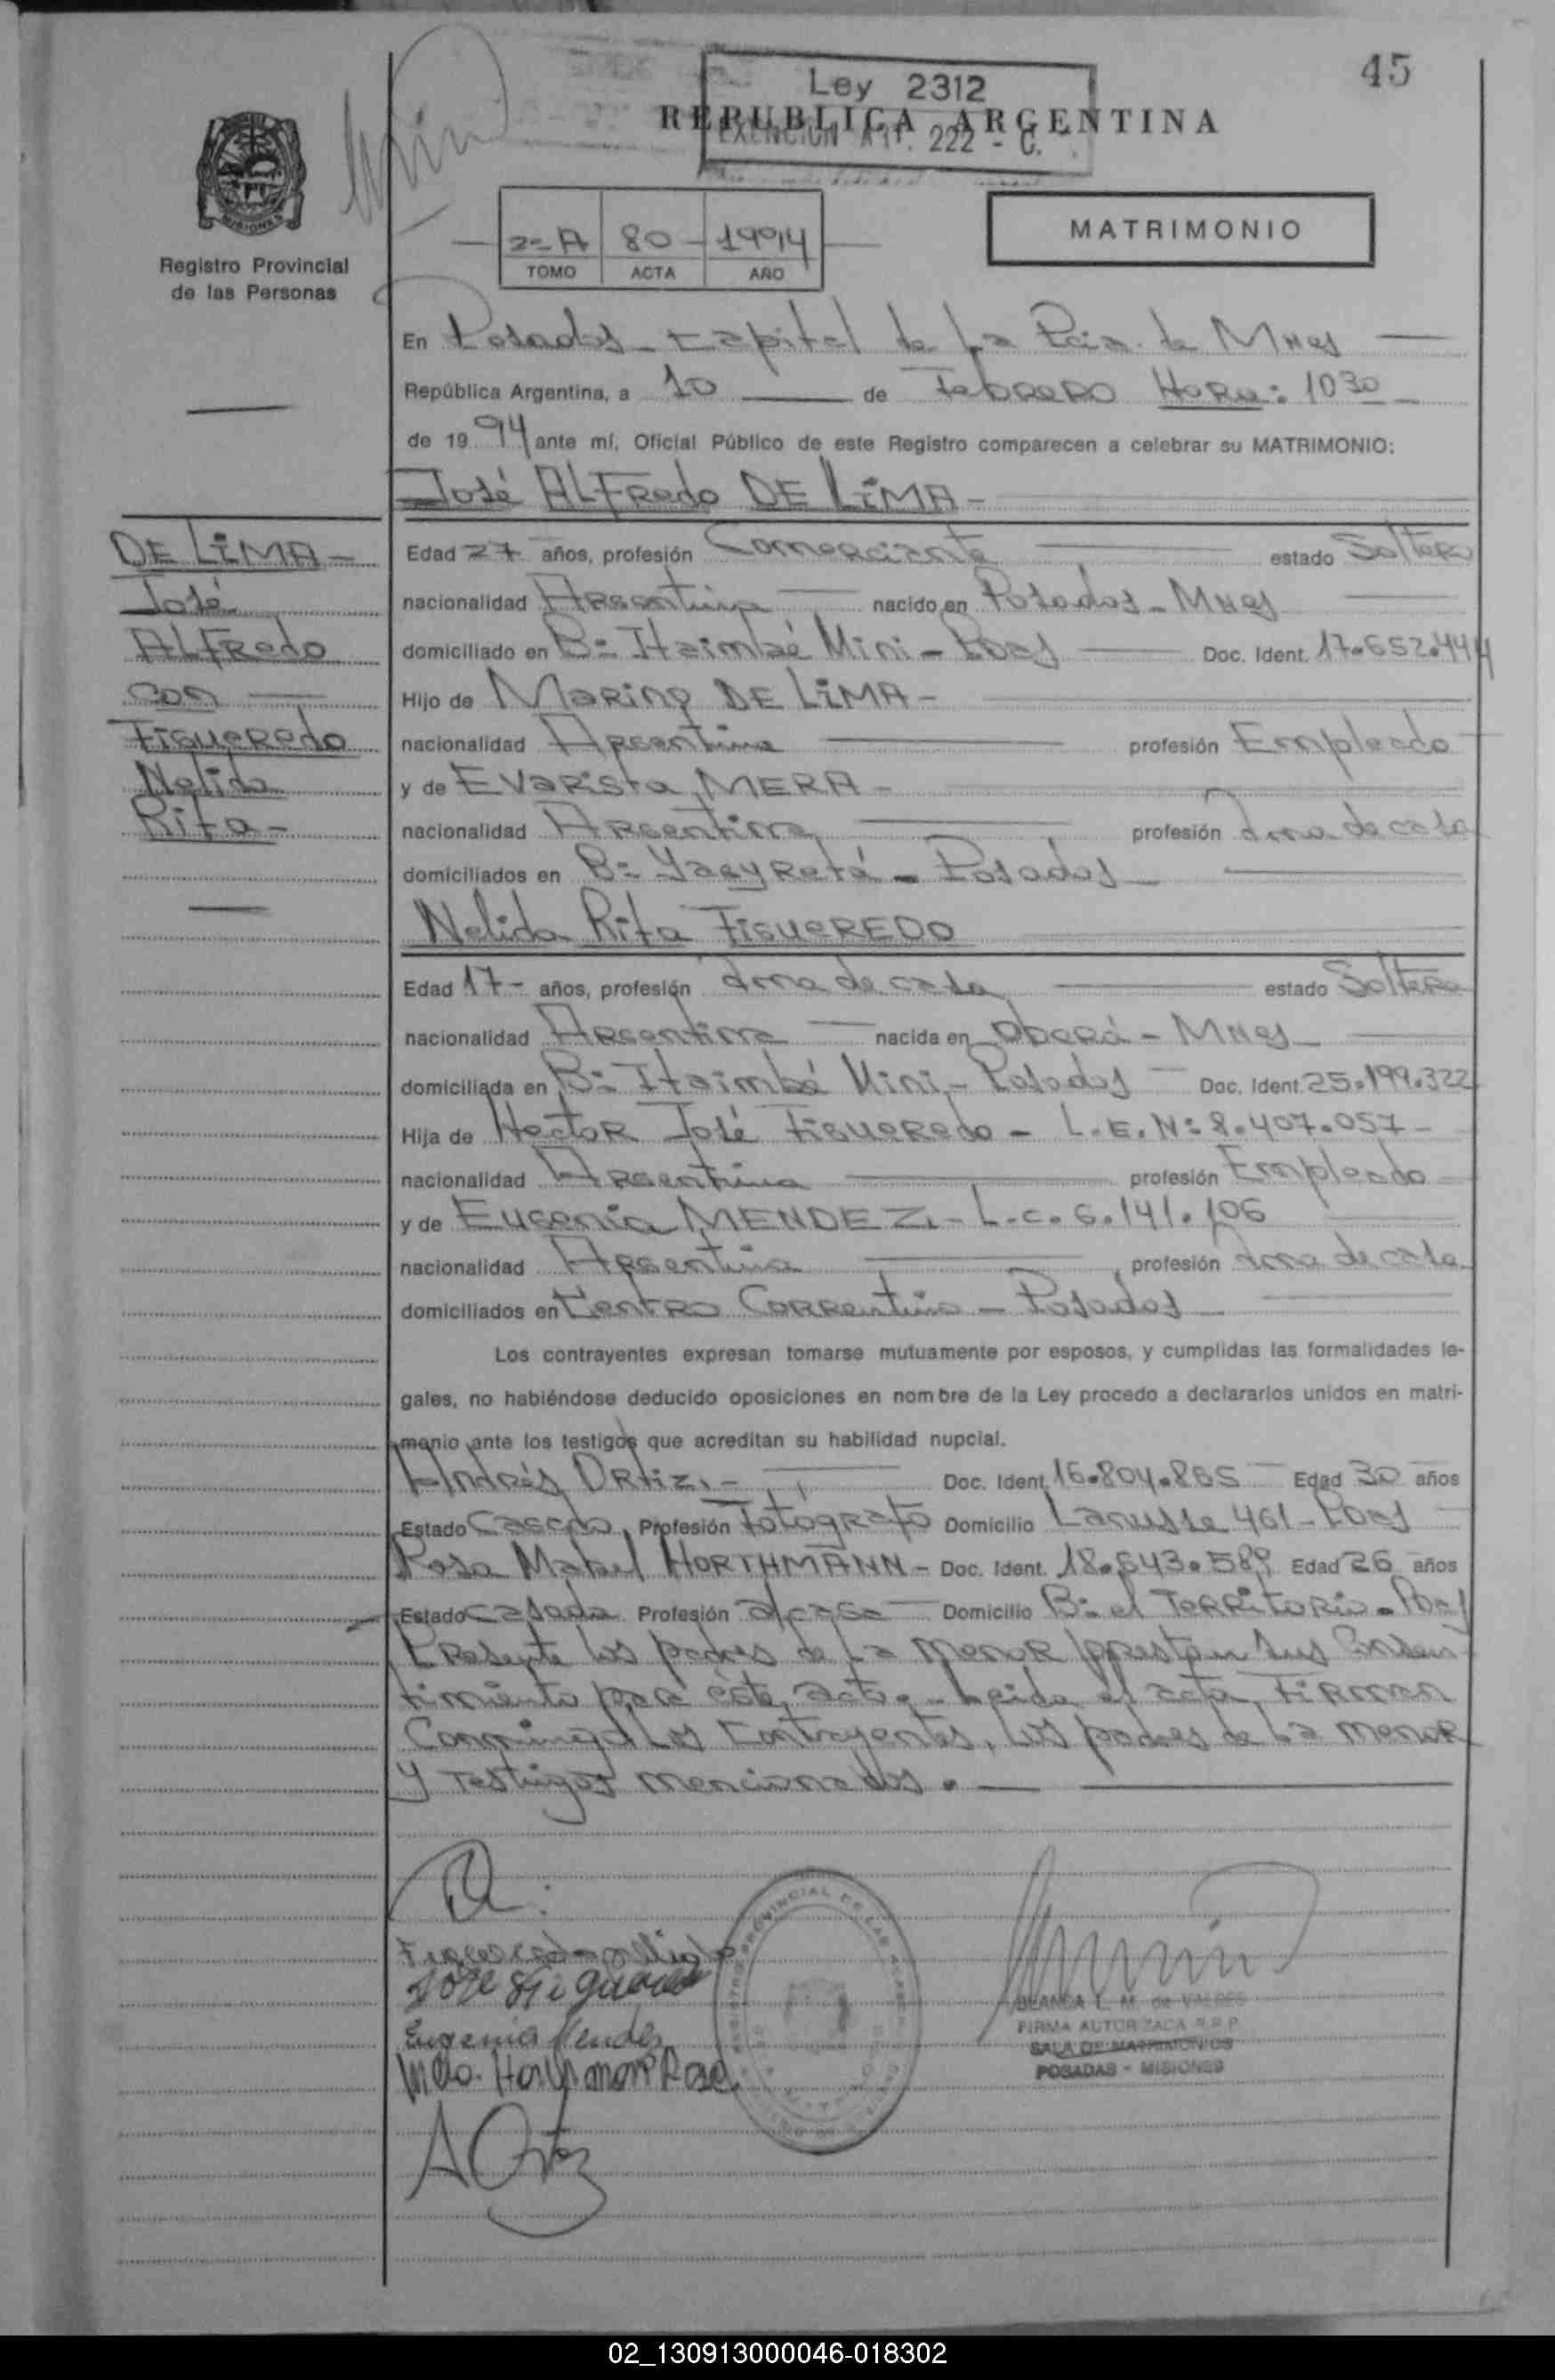 45
Ley 2312
REPUBLICA ARGENTINA
EXENCION Art. 222 - C.
MISIONES
Registro Provincial
de las Personas
2º A 80 - 1994
TOMO ACTA AÑO
MATRIMONIO
En Posadas - Capital de La Pcia. de Mnes
República Argentina, a 10 de Febrero Hora: 10 30
de 19 94 ante mí, Oficial Público de este Registro comparecen a celebrar su MATRIMONIO:
José ALFredo DE LiMA -
DE LiMA -
José
ALFredo
con
Figueredo
Nelida
Rita -
Edad 27 años, profesión Comerciante estado Soltero
nacionalidad Argentina nacido en Posadas - Mnes
domiciliado en Bº Itaimbé Mini - Pdas Doc. Ident. 17.652.444
Hijo de Marino DE LiMA -
nacionalidad Argentina profesión Empleado
y de Evarista MERA -
nacionalidad Argentina profesión Ama de casa
domiciliados en Bº Yacyretá - Posadas
Nelida Rita FIGUEREDO
Edad 17 - años, profesión Ama de casa estado Soltera
nacionalidad Argentina nacida en Oberá - Mnes
domiciliada en Bº Itaimbé Mini - Posadas Doc. Ident. 25.199.322
Hija de Hector José Figueredo - L.E. Nº 8.407.057 -
nacionalidad Argentina profesión Empleado
y de Eugenia MENDEZ - L.C. 6.141.106
nacionalidad Argentina profesión Ama de casa
domiciliados en Centro Correntino - Posadas
Los contrayentes expresan tomarse mutuamente por esposos, y cumplidas las formalidades le-
gales, no habiéndose deducido oposiciones en nombre de la Ley procedo a declararlos unidos en matri-
monio ante los testigos que acreditan su habilidad nupcial.
Andrés Ortiz - Doc. Ident. 16.804.865 Edad 30 años
Estado Casado Profesión Fotógrafo Domicilio Lanusse 461 - Pdas
Rosa Mabel HORTHMANN - Doc. Ident. 18.643.589 Edad 26 años
Estado casada Profesión a/casa Domicilio Bº el Territorio - Pdas
Presente los padres de La menor prestan sus Consen
timiento para éste acto. - Leida el acta, Firman
Conmigo Los Contrayentes, los padres de La menor
y Testigos mencionados. -
Jose Figueredo
Eugenia Mendez
Horthmann Rosa
A Ortiz
REGISTRO PROVINCIAL DE LAS PERSONAS
BLANCA L. M. de VALDES
FIRMA AUTORIZADA R.P.P.
SALA DE MATRIMONIOS
POSADAS - MISIONES
02_130913000046-018302